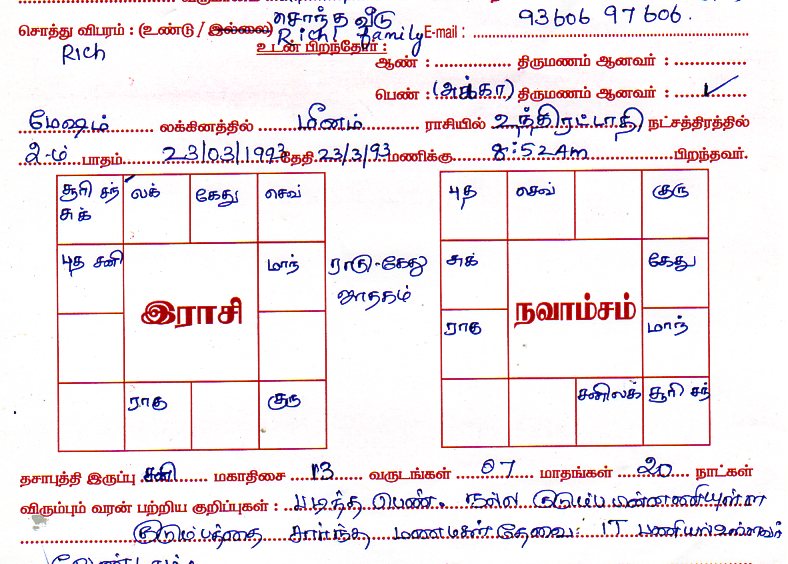 சொத்து விபரம் : (உண்டு / இல்லை) சொந்த வீடு 93606 97606.
Rich Rich family E-mail :
உடன் பிறந்தோர் :
ஆண் : திருமணம் ஆனவர் :
பெண் : (அக்கா) திருமணம் ஆனவர் : ✓
மேஷம் லக்கினத்தில் மீனம் ராசியில் உத்திரட்டாதி நட்சத்திரத்தில்
2-ம் பாதம் 23/03/1993 தேதி 23/3/93 மணிக்கு 8:52Am பிறந்தவர்.
சூரி சந் லக் கேது செவ்
சுக்
புத சனி மாந்
இராசி
ராகு குரு
ராகு-கேது
ஜாதகம்
புத செவ் குரு
சுக் கேது
நவாம்சம்
ராகு மாந்
சனிலக் சூரி சந்
தசாபுத்தி இருப்பு சனி மகாதிசை 13 வருடங்கள் 07 மாதங்கள் 20 நாட்கள்
விரும்பும் வரன் பற்றிய குறிப்புகள் : படித்த பெண். நல்ல குடும்ப பின்னணியுள்ள
குடும்பத்தை சார்ந்த மணமகள் தேவை. IT பணியில் உள்ளவர்